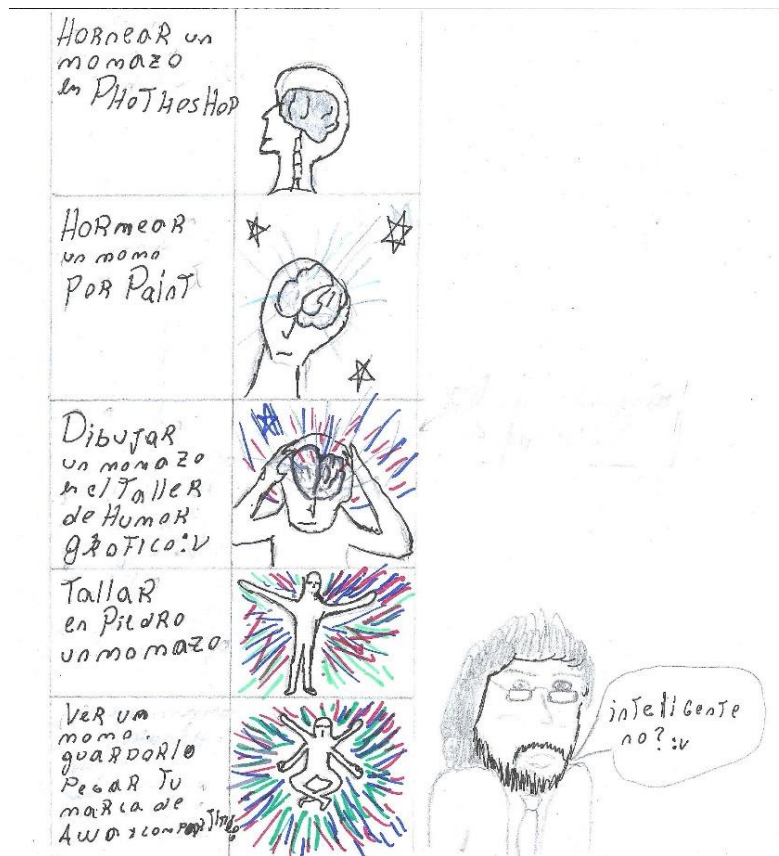 HORNEAR un
momazo
en PHOTHOSHOP
HORmeAR
un momo
POR PainT
DibuJAR
un momazo
en el TalleR
de HumoR
gRaFICO:v
TallaR
en PiedRa
un momazo
VeR um
momo.
guaRDaRlo
PegaR Tu
maRca de
inTeligente
no? :v